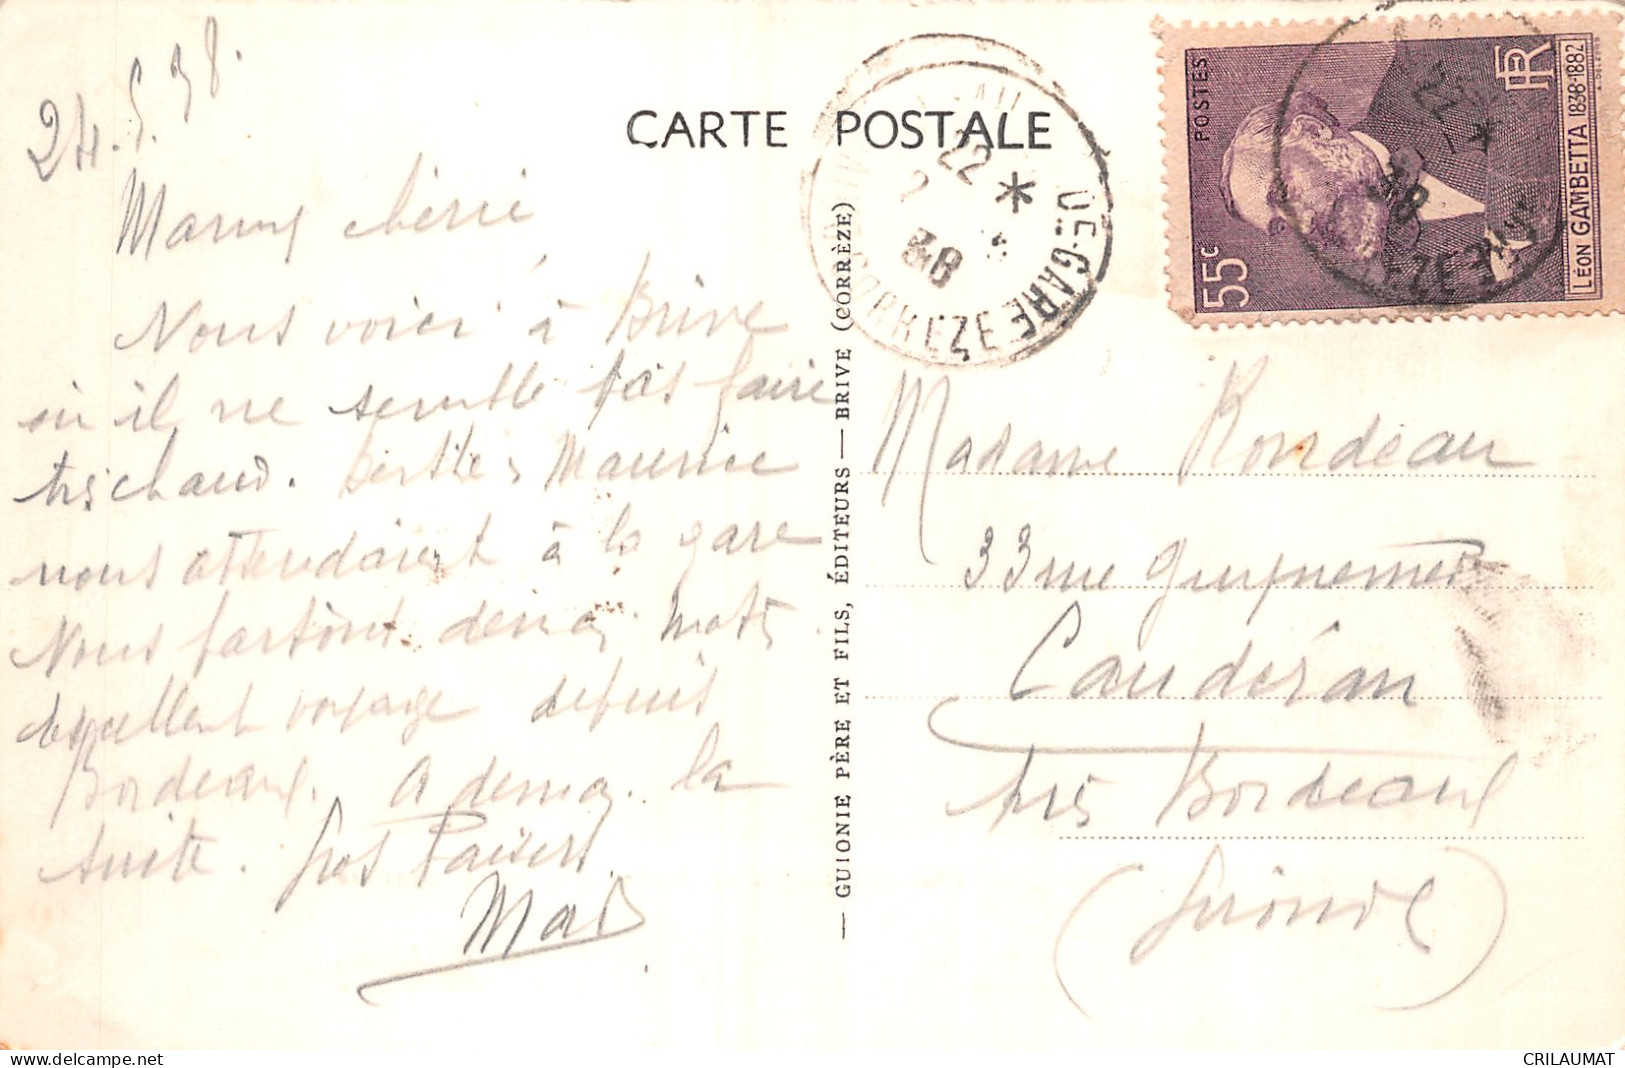 24.5.38.
CARTE POSTALE
Mamy chérie
Nous voici à Brive
où il ne semble pas faire
très chaud. Berthe, Maurice
nous attendaient à la gare
Nous partons demain
excellent voyage depuis
Bordeaux. A demain la
suite. Gros Baisers
Mad
— GUIONIE PÈRE ET FILS, ÉDITEURS — BRIVE (CORRÈZE)
22 *
38
DE-GARE
CORREZE
POSTES
RF
55c
LÉON GAMBETTA 1838-1882
22
38
Madame Rondeau
33 rue Guynemer
Caudéran
près Bordeaux
(Gironde)
CRILAUMAT